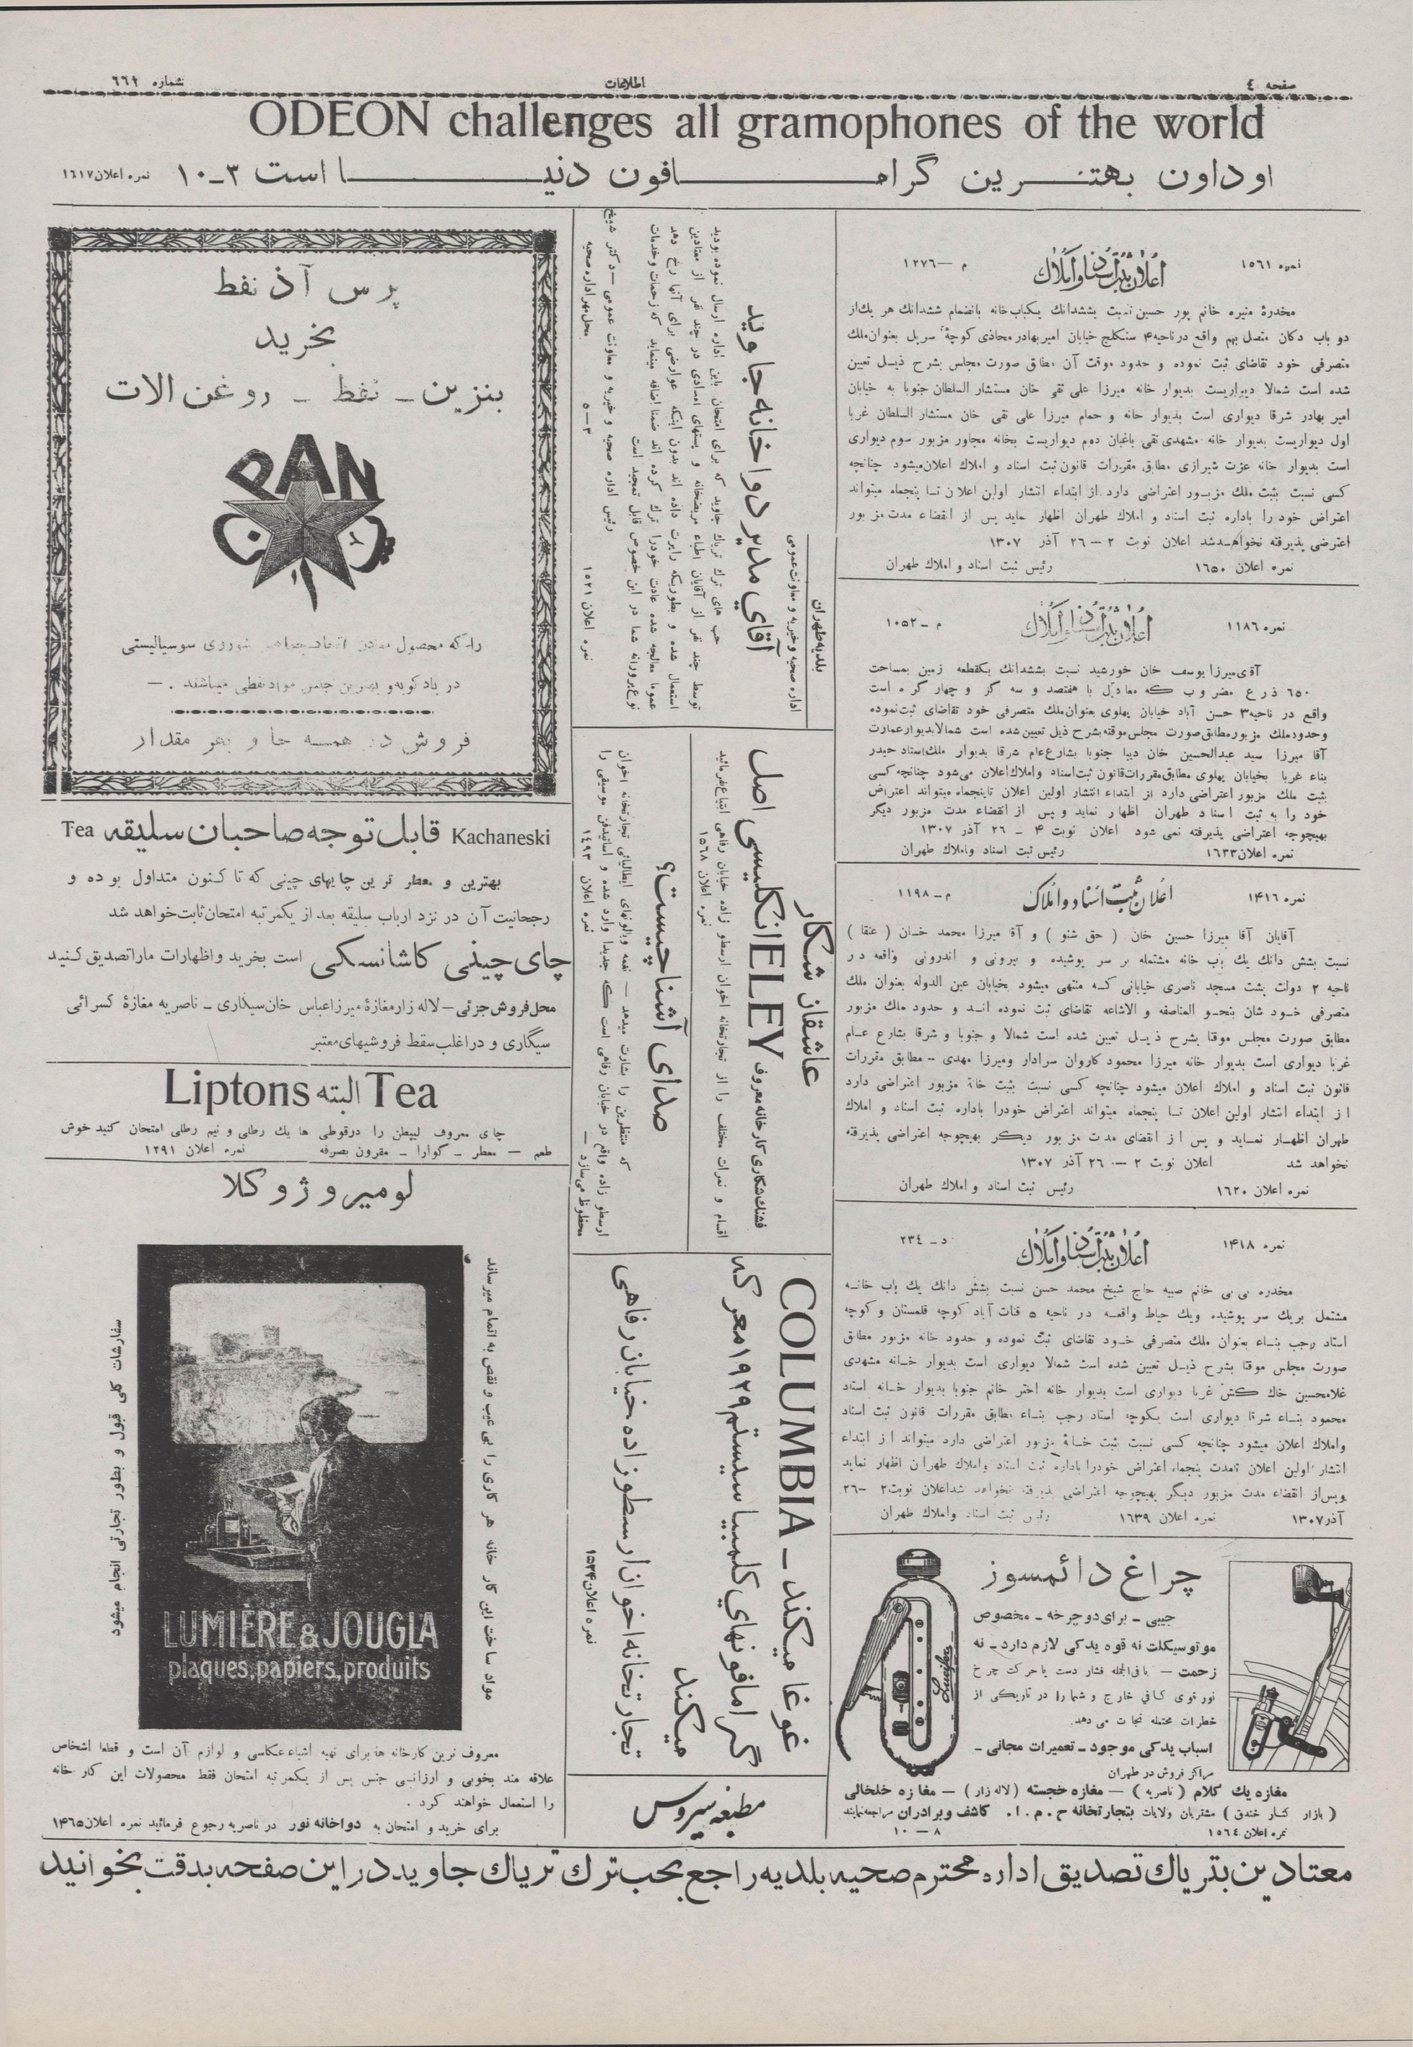 صفحه ٤
اطلاعات
شماره ٦٦٢
ODEON challenges all gramophones of the world
اوداون بهترین گرامافون دنیا است ۳ـ۱۰
نمره اعلان ۱٦۱۷
نمره ۱٥٦۱
اعلان ثبت اسناد و املاک
م – ۱۲۷٦
مخدرهٔ منیره خانم پور حسین نسبت بششدانك یكباب خانه بانضمام ششدانك هر یك از
دو باب دکان متصل بهم واقع در ناحیه ۴ سنگلج خیابان امیر بهادر محاذی کوچهٔ سرپل بعنوان ملك
متصرفی خود تقاضای ثبت نموده و حدود موقت آن مطابق صورت مجلس بشرح ذیل تعیین
شده است شمالا دیواریست بدیوار خانه میرزا علی نقی خان مستشار السلطان جنوبا به خیابان
امیر بهادر شرقا دیواری است بدیوار خانه و حمام میرزا علی نقی خان مستشار السلطان غربا
اول دیواریست بدیوار خانه مشهدی تقی باغبان دوم دیواریست بخانه مجاور مزبور سوم دیواری
است بدیوار خانه عزت شیرازی مطابق مقررات قانون ثبت اسناد و املاك اعلان میشود چنانچه
کسی نسبت بثبت ملك مزبور اعتراضی دارد از ابتداء انتشار اولین اعلان تا پنجماه میتواند
اعتراض خود را باداره ثبت اسناد و املاك طهران اظهار نماید پس از انقضاء مدت مزبور
اعترضی پذیرفته نخواهد شد اعلان نوبت ۲ – ۲٦ آذر ۱۳۰۷
نمره اعلان ۱٦٥۰
رئیس ثبت اسناد و املاك طهران
نمره ۱۱۸٦
اعلان ثبت اسناد و املاک
م – ۱۰٥۲
آقای میرزا یوسف خان خورشید نسبت بششدانك یكقطعه زمین بمساحت
٦٥۰ ذرع مضروب که معادل با هفتصد و سه گز و چهار گره است
واقع در ناحیه ۳ حسن آباد خیابان پهلوی بعنوان ملك متصرفی خود تقاضای ثبت نموده
وحدود ملك مزبور مطابق صورت مجلس موقته بشرح ذیل تعیین شده است شمالا بدیوار عمارت
آقا میرزا سید عبدالحسین خان دیبا جنوبا بشارع عام شرقا بدیوار ملك استاد حیدر
بناء غربا بخیابان پهلوی مطابق مقررات قانون ثبت اسناد و املاك اعلان می شود چنانچه کسی
بثبت ملك مزبور اعتراضی دارد از ابتداء انتشار اولین اعلان تا پنجماه میتواند اعتراض
خود را به ثبت اسناد طهران اظهار نماید و پس از انقضاء مدت مزبور دیگر
بهیچوجه اعتراضی پذیرفته نمی شود اعلان نوبت ۴ – ۲٦ آذر ۱۳۰۷
نمره اعلان ۱٦۳۳
رئیس ثبت اسناد و املاك طهران
نمره ۱٤۱٦
اعلان ثبت اسناد و املاک
م – ۱۱۹۸
آقایان آقا میرزا حسین خان ( حق شنو ) و آقا میرزا محمد خان ( عنقا )
نسبت بشش دانك یك باب خانه مشتمله بر سر پوشیده و بیرونی و اندرونی واقعه در
ناحیه ۲ دولت پشت مسجد ناصری خیابانی که منتهی میشود بخیابان عین الدوله بعنوان ملك
متصرفی خود شان بنحو المناصفه و الاشاعه تقاضای ثبت نموده اند و حدود ملك مزبور
مطابق صورت مجلس موقتا بشرح ذیل تعیین شده است شمالا و جنوبا و شرقا بشارع عام
غربا دیواری است بدیوار خانه میرزا محمود کاروان سرادار ومیرزا مهدی – مطابق مقررات
قانون ثبت اسناد و املاك اعلان میشود چنانچه کسی نسبت بثبت خانهٔ مزبور اعتراضی دارد
از ابتداء انتشار اولین اعلان تا پنجماه میتواند اعتراض خودرا باداره ثبت اسناد و املاك
طهران اظهار نماید و پس از انقضای مدت مزبور دیگر بهیچوجه اعتراضی پذیرفته
نخواهد شد اعلان نوبت ۲ – ۲٦ آذر ۱۳۰۷
نمره اعلان ۱٦۲۰
رئیس ثبت اسناد و املاك طهران
نمره ۱٤۱۸
اعلان ثبت اسناد و املاک
د – ۲۳٤
مخدره بی بی خانم صبیه حاج شیخ محمد حسن نسبت بشش دانك یك باب خانه
مشتمل بریك سر پوشیده ویك حیاط واقعه در ناحیه ٥ قنات آباد کوچه قلمستان و کوچه
استاد رجب بناء بعنوان ملك متصرفی خود تقاضای ثبت نموده و حدود خانه مزبور مطابق
صورت مجلس موقتا بشرح ذیل تعیین شده است شمالا دیواری است بدیوار خانه مشهدی
غلامحسین خاك کش غربا دیواری است بدیوار خانه اختر خانم جنوبا بدیوار خانه استاد
محمود بناء شرقا دیواری است بکوچه استاد رجب بناء مطابق مقررات قانون ثبت اسناد
واملاك اعلان میشود چنانچه کسی نسبت ثبت خانهٔ مزبور اعتراضی دارد میتواند از ابتداء
انتشار اولین اعلان تامدت پنجماه اعتراض خودرا باداره ثبت اسناد واملاك طهران اظهار نماید
وپس از انقضاء مدت مزبور دیگر بهیچوجه اعتراضی پذیرفته نخواهد شد اعلان نوبت ۲ – ۲٦
آذر ۱۳۰۷ نمره اعلان ۱٦۳۹
رئیس ثبت اسناد واملاك طهران
چراغ دائمسوز
جیبی – برای دوچرخه – مخصوص
موتوسیکلت نه قوه یدکی لازم دارد – نه
زحمت – بافی الجمله فشار دست یا حرکت چرخ
نور قوی کافی خارج و شما را در تاریکی از
خطرات محتمله نجات می دهد
اسباب یدکی موجود – تعمیرات مجانی –
مراکز فروش در طهران
مغازه یك کلام ( ناصریه ) – مغازه خجسته ( لاله زار ) – مغازه خلخالی
( بازار کنار خندق ) مشتریان ولایات بتجارتخانه ح . م . ا . کاشف وبرادران مراجعه نمایند
نمره اعلان ۱٥٦٤
۸ – ۱۰
Lucifer
بلدیه طهران
اداره صحیه و خیریه و معاونت عمومی
آقای مدیر دواخانه جاوید
حب های ترك تریاك جاوید که برای امتحان باین اداره ارسال نموده بودید
توسط چند نفر از آقایان اطباء مریضخانه و پستهای امدادی در چند نفر از معتادین
استعمال شده و بطوریکه راپرت داده اند بدون اینکه عوارضی برای آنها رخ دهد
عموما معالجه شده عادت خودرا ترك کرده اند ضمنا اضافه مینماید که زحمات وخدمات
نوع پرورانه شما در این خصوص قابل تمجید است
رئیس اداره صحیه و خیریه و معاونت عمومی – دکتر شیخ
محل مهر اداره صحیه
۳ – ٥
نمره اعلان ۱٥۲۱
عاشقان شکار
فشنك شکاری کارخانه معروف ELEY انگلیسی اصل
اقسام و نمرات مختلف را از تجارتخانه اخوان ارسطو زاده خیابان رفاهی ابتیاع فرمائید
نمره اعلان ۱٥٦۸
صدای آشنا چیست؟
که منتظرین را بشارت میدهد – نغمه ویالونهای ایطالیائی تجارتخانه اخوان
ارسطو زاده واقع در خیابان رفاهی است که جدیدا وارد شده و اساتیدفن موسیقی را
محظوظ می سازد –
نمره اعلان ۱٤۹۳
COLUMBIA – غوغا میکند
گرامافونهای کلمبیا سیستم ۱۹۲۹ معرکه
میکند
تجارتخانه اخوان ارسطو زاده خیابان رفاهی
نمره اعلان ۱٥۳۴
مطبعه سیروس
پرس آذ نفط
بخرید
بنزین – نفط – روغن الات
PAN
را که محصول معادن اتحاد جماهیر شوروی سوسیالیستی
در بادکوبه و بهترین جنس مواد نفطی میباشند . –
فروش در همه جا و بهر مقدار
Kachaneski قابل توجه صاحبان سلیقه Tea
بهترین و معطر ترین چایهای چینی که تا کنون متداول بوده و
رجحانیت آن در نزد ارباب سلیقه بعد از یکمرتبه امتحان ثابت خواهد شد
چای چینی کاشانسکی است بخرید و اظهارات مارا تصدیق کنید
محل فروش جزئی – لاله زار مغازهٔ میرزا عباس خان سیگاری – ناصریه مغازهٔ کسرائی
سیگاری و در اغلب سقط فروشیهای معتبر
Liptons البته Tea
چای معروف لیپطن را درقوطی ها یك رطلی و نیم رطلی امتحان کنید خوش
طعم – معطر – گوارا – مقرون بصرفه نمره اعلان ۱۲۹۱
لومیر و ژوگلا
مواد ساخت این کار خانه هر کاری را بی عیب و نقص به اتمام میرساند
LUMIÈRE & JOUGLA
plaques, papiers, produits
سفارشات کلی قبول و بطور تجارتی انجام میشود
معروف ترین کارخانه ها برای تهیه اشیاء عکاسی و لوازم آن است و قطعا اشخاص
علاقه مند بخوبی و ارزانی جنس پس از یکمرتبه امتحان فقط محصولات این کار خانه
را استعمال خواهند کرد .
برای خرید و امتحان به دواخانه نور در ناصریه رجوع فرمائید نمره اعلان ۱۴٦٥
معتادین بتریاك تصدیق اداره محترم صحیه بلدیه راجع بحب ترك تریاك جاوید در این صفحه بدقت بخوانید